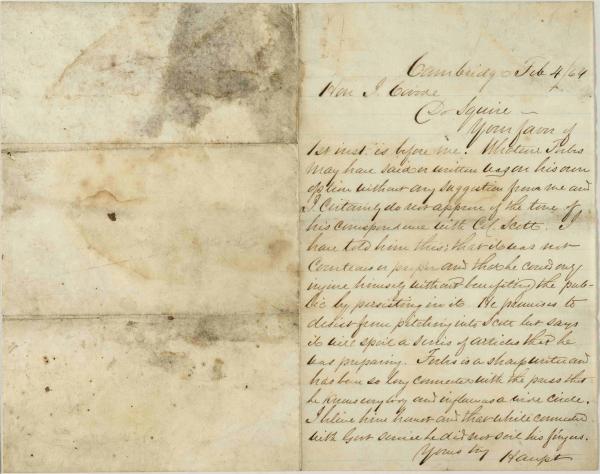 Cambridge Feb 4/64
Hon J. Covode
Dr Squire —
Your favor of
1st inst. is before me. Whatever Forbes
may have said or written was on his own
option without any suggestion from me and
I certainly do not approve of the tone of
his correspondence with Col. Scott. I
have told him this; that it was not
Courteous or proper and that he could only
injure himself without benefiting the pub-
lic by persisting in it. He promises to
desist from pitching into Scott but says
it will spoil a series of articles that he
was preparing. Forbes is a sharp writer and
has been so long connected with the press that
he knows every body and influences a wide circle.
I believe him honest and that while connected
with Govt service he did not soil his fingers.
Yours try
Haupt